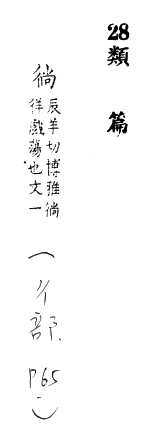 28類篇
徜
辰羊切博雅徜
徉戲蕩也文一
(彳部 P65)